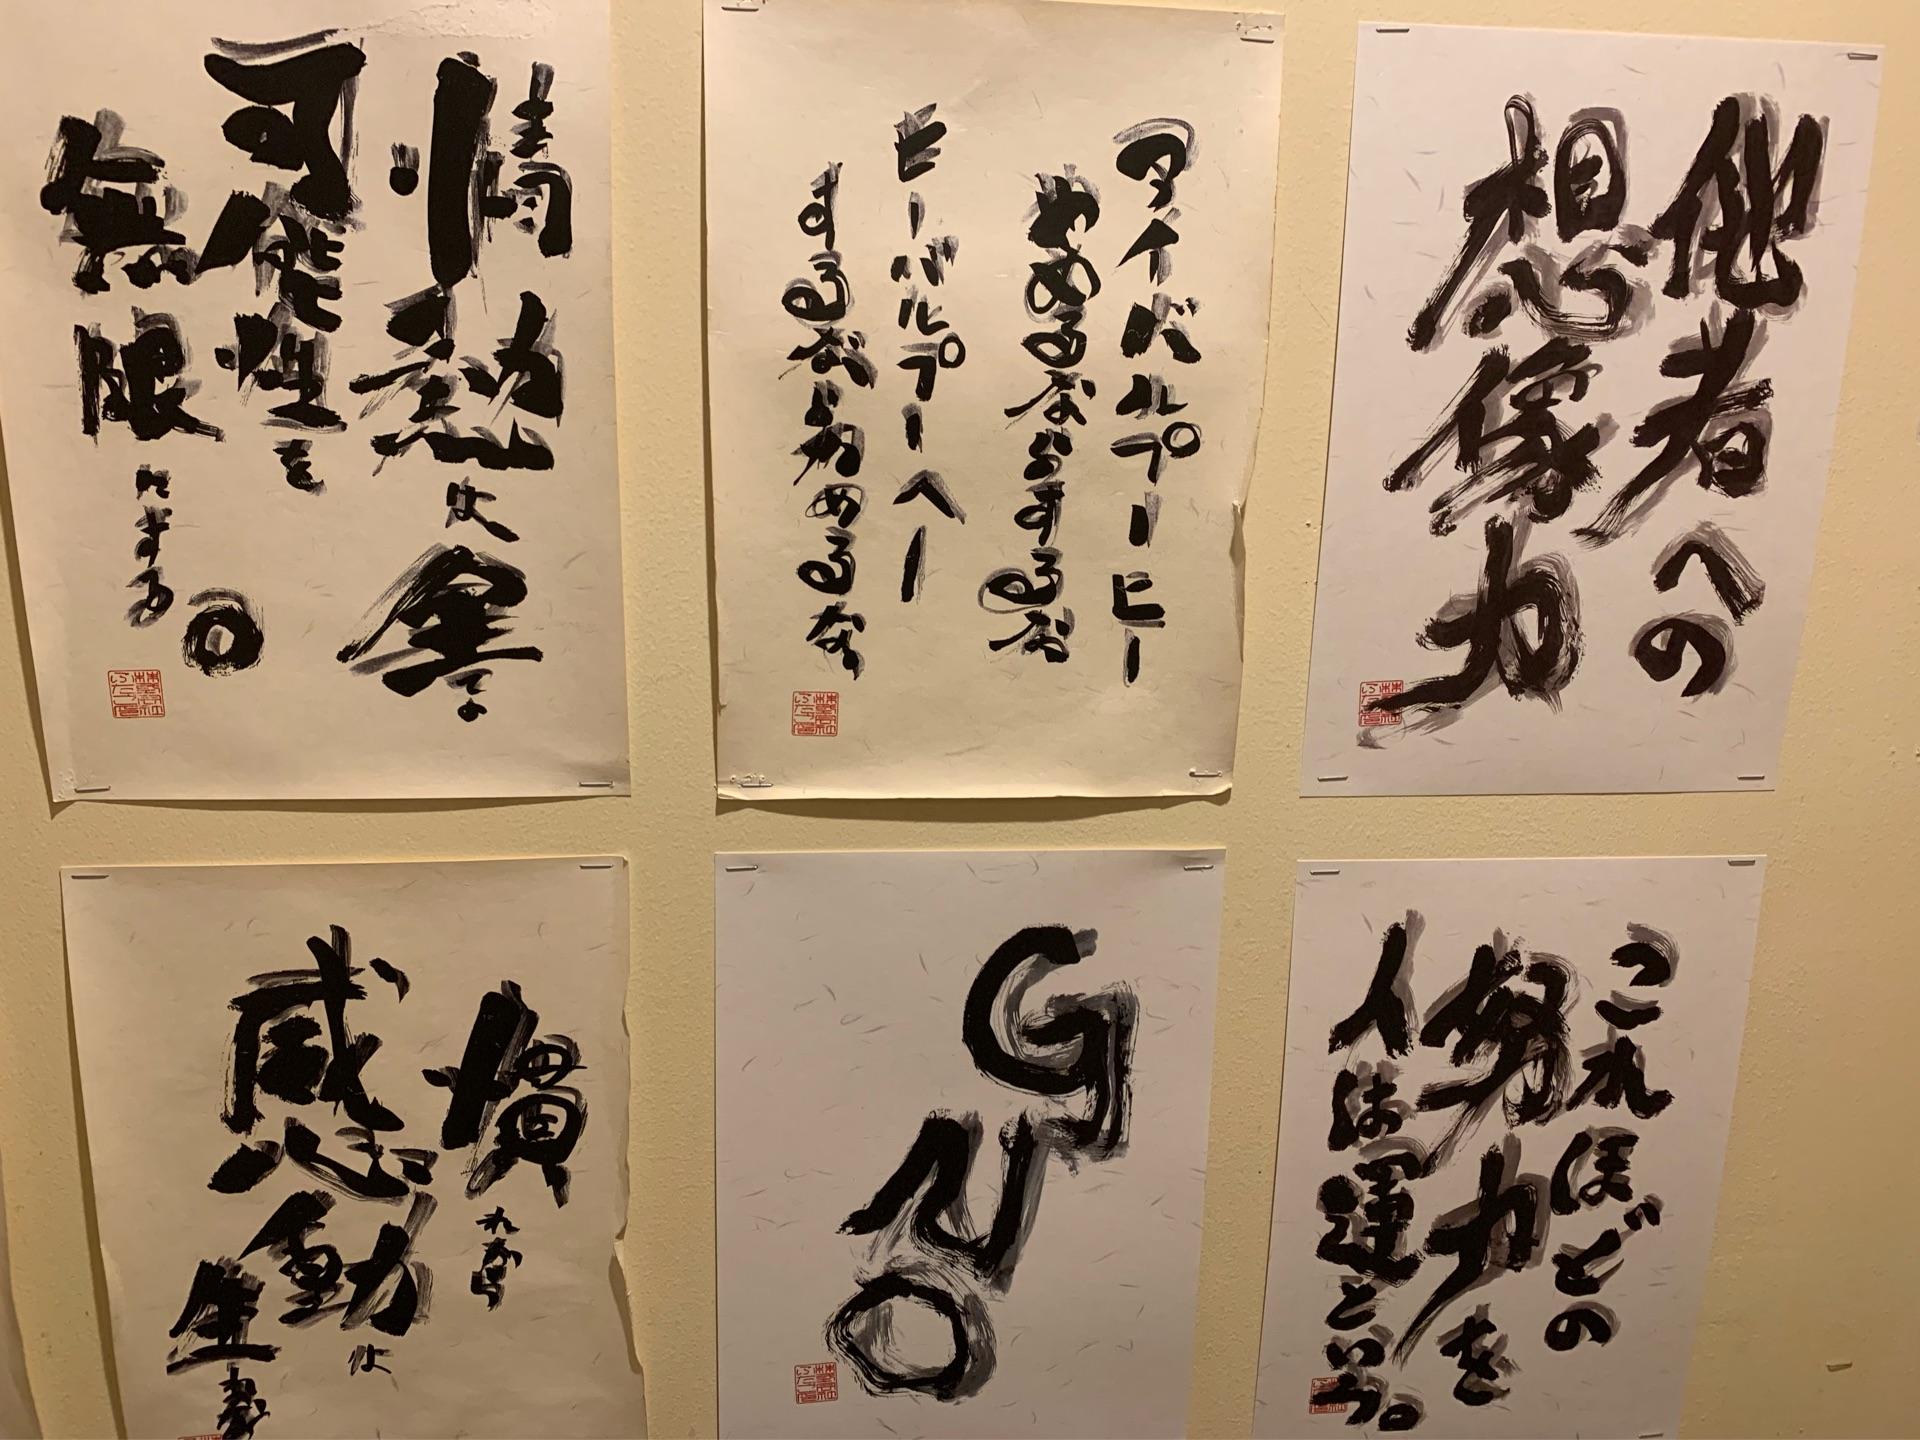 情熱は全ての
可能性を
無限にする。
アイバルプーヒー
やめるならするな
ヒーバルプーヘー
するならやめるな
他者への
想像力
慣れから
感動は
生まれ
G
N
O
これほどの
努力を
人は運という。